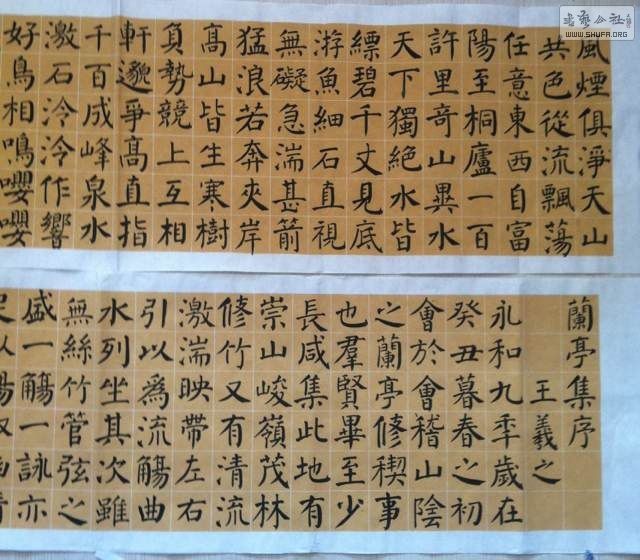 風煙俱淨天山
共色從流飄蕩
任意東西自富
陽至桐廬一百
許里奇山異水
天下獨絕水皆
縹碧千丈見底
游魚細石直視
無礙急湍甚箭
猛浪若奔夾岸
高山皆生寒樹
負勢競上互相
軒邈爭高直指
千百成峰泉水
激石泠泠作響
好鳥相鳴嚶嚶
蘭亭集序
王羲之
永和九秊歲在
癸丑暮春之初
會於會稽山陰
之蘭亭俢禊事
也羣賢畢至少
長咸集此地有
崇山峻嶺茂林
俢竹又有清流
激湍映帶左右
引以爲流觴曲
水列坐其次雖
無絲竹管弦之
盛一觴一詠亦
WWW.SHUFA.ORG